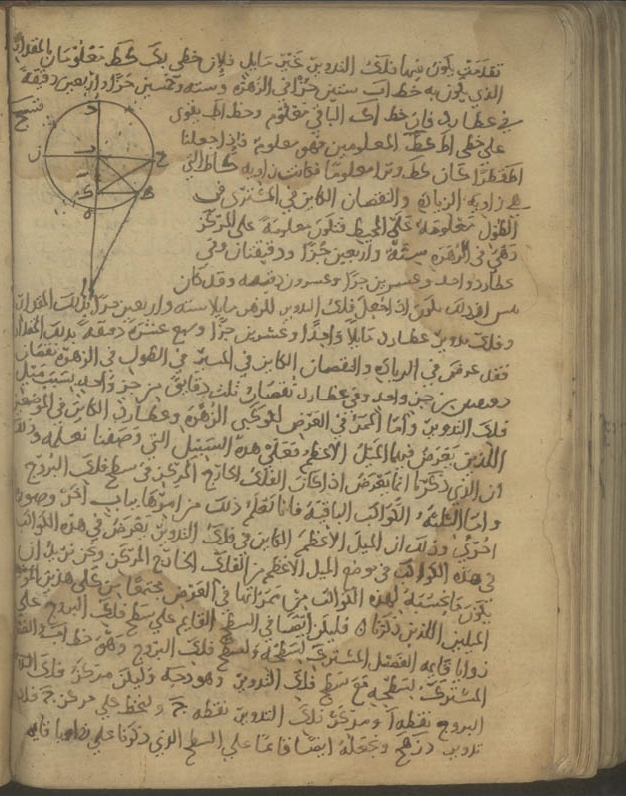 تقدمت يكون فيها فلك التدوير غير مايل فلان خطي بك كط معلومان بالمقدار
الذي يكون به خط اب ستين جزا في الزهرة وستة وخمسين جزا واربعين دقيقة
في عطارد فان خط اك الباقي معلوم وخط اط يقوى
على خطي اك كط المعلومين فهو معلوم فاذا جعلنا
اط قطرا كان كط وترا معلوما فكانت زاويه كاط التي
هي زاويه الزيادة والنقصان الكاين في المشترى في
الطول معلومة على المحيط فتكون معلومة على المركز
وهي في الزهرة ستة واربعين جزا ودقيقتان وفي
عطارد واحد وعشرين جزا وعشرون دقيقه وقد كان
اذا جعل فلك التدوير للزهره مايلا سته واربعين جزا بذلك المقدار
وفلك تدوير عطارد مايلا واحدا وعشرين جزا وسبع عشرة دقيقة بذلك المقدار
فقد عرض في الزيادة والنقصان الكاين في المسير في الطول في الزهرة نقصان
دقيقتين من جزء واحد وفي عطارد نقصان ثلث دقايق من جز واحد بسبب ميل
فلك التدوير واما الممر في العرض لكوكبي الزهرة وعطارد الكاين في الموضعين
اللذين يعرض فيهما الميل الاعظم فعلى هذه السبيل التي وصفنا نعلمه وذلك
ان الذي ذكرنا انما يعرض اذا كان الفلك الخارج المركز في سطح فلك البروج
واما الثلثة الكواكب الباقية فانا نعلم ذلك من امرها بباب اخر وصورة
اخرى وذلك ان الميل الاعظم الكاين في فلك التدوير يعرض في هذه الكواكب
في هذه الكواكب في موضع الميل الاعظم من الفلك الخارج المركز ونحن نريد ان
تكون لهذه الكواكب من ممراتها في العرض مجتمعا من على هذين
الميلين اللذين ذكرنا فليكن ايضا في السطح القايم على سطح فلك البروج على
زوايا قايمه الفصل المشترك لسطحه ولسطح فلك البروج وهو خط اب والفصل
المشترك لسطحه مع سطح فلك التدوير وهو دجه وليكن مركز فلك
البروج نقطة ا ومركز فلك التدوير نقطه ج ولنخط على مركز ج فلك
تدوير دزهح ونجعله ايضا قايما على السطح الذي ذكرنا على زوايا قايمه